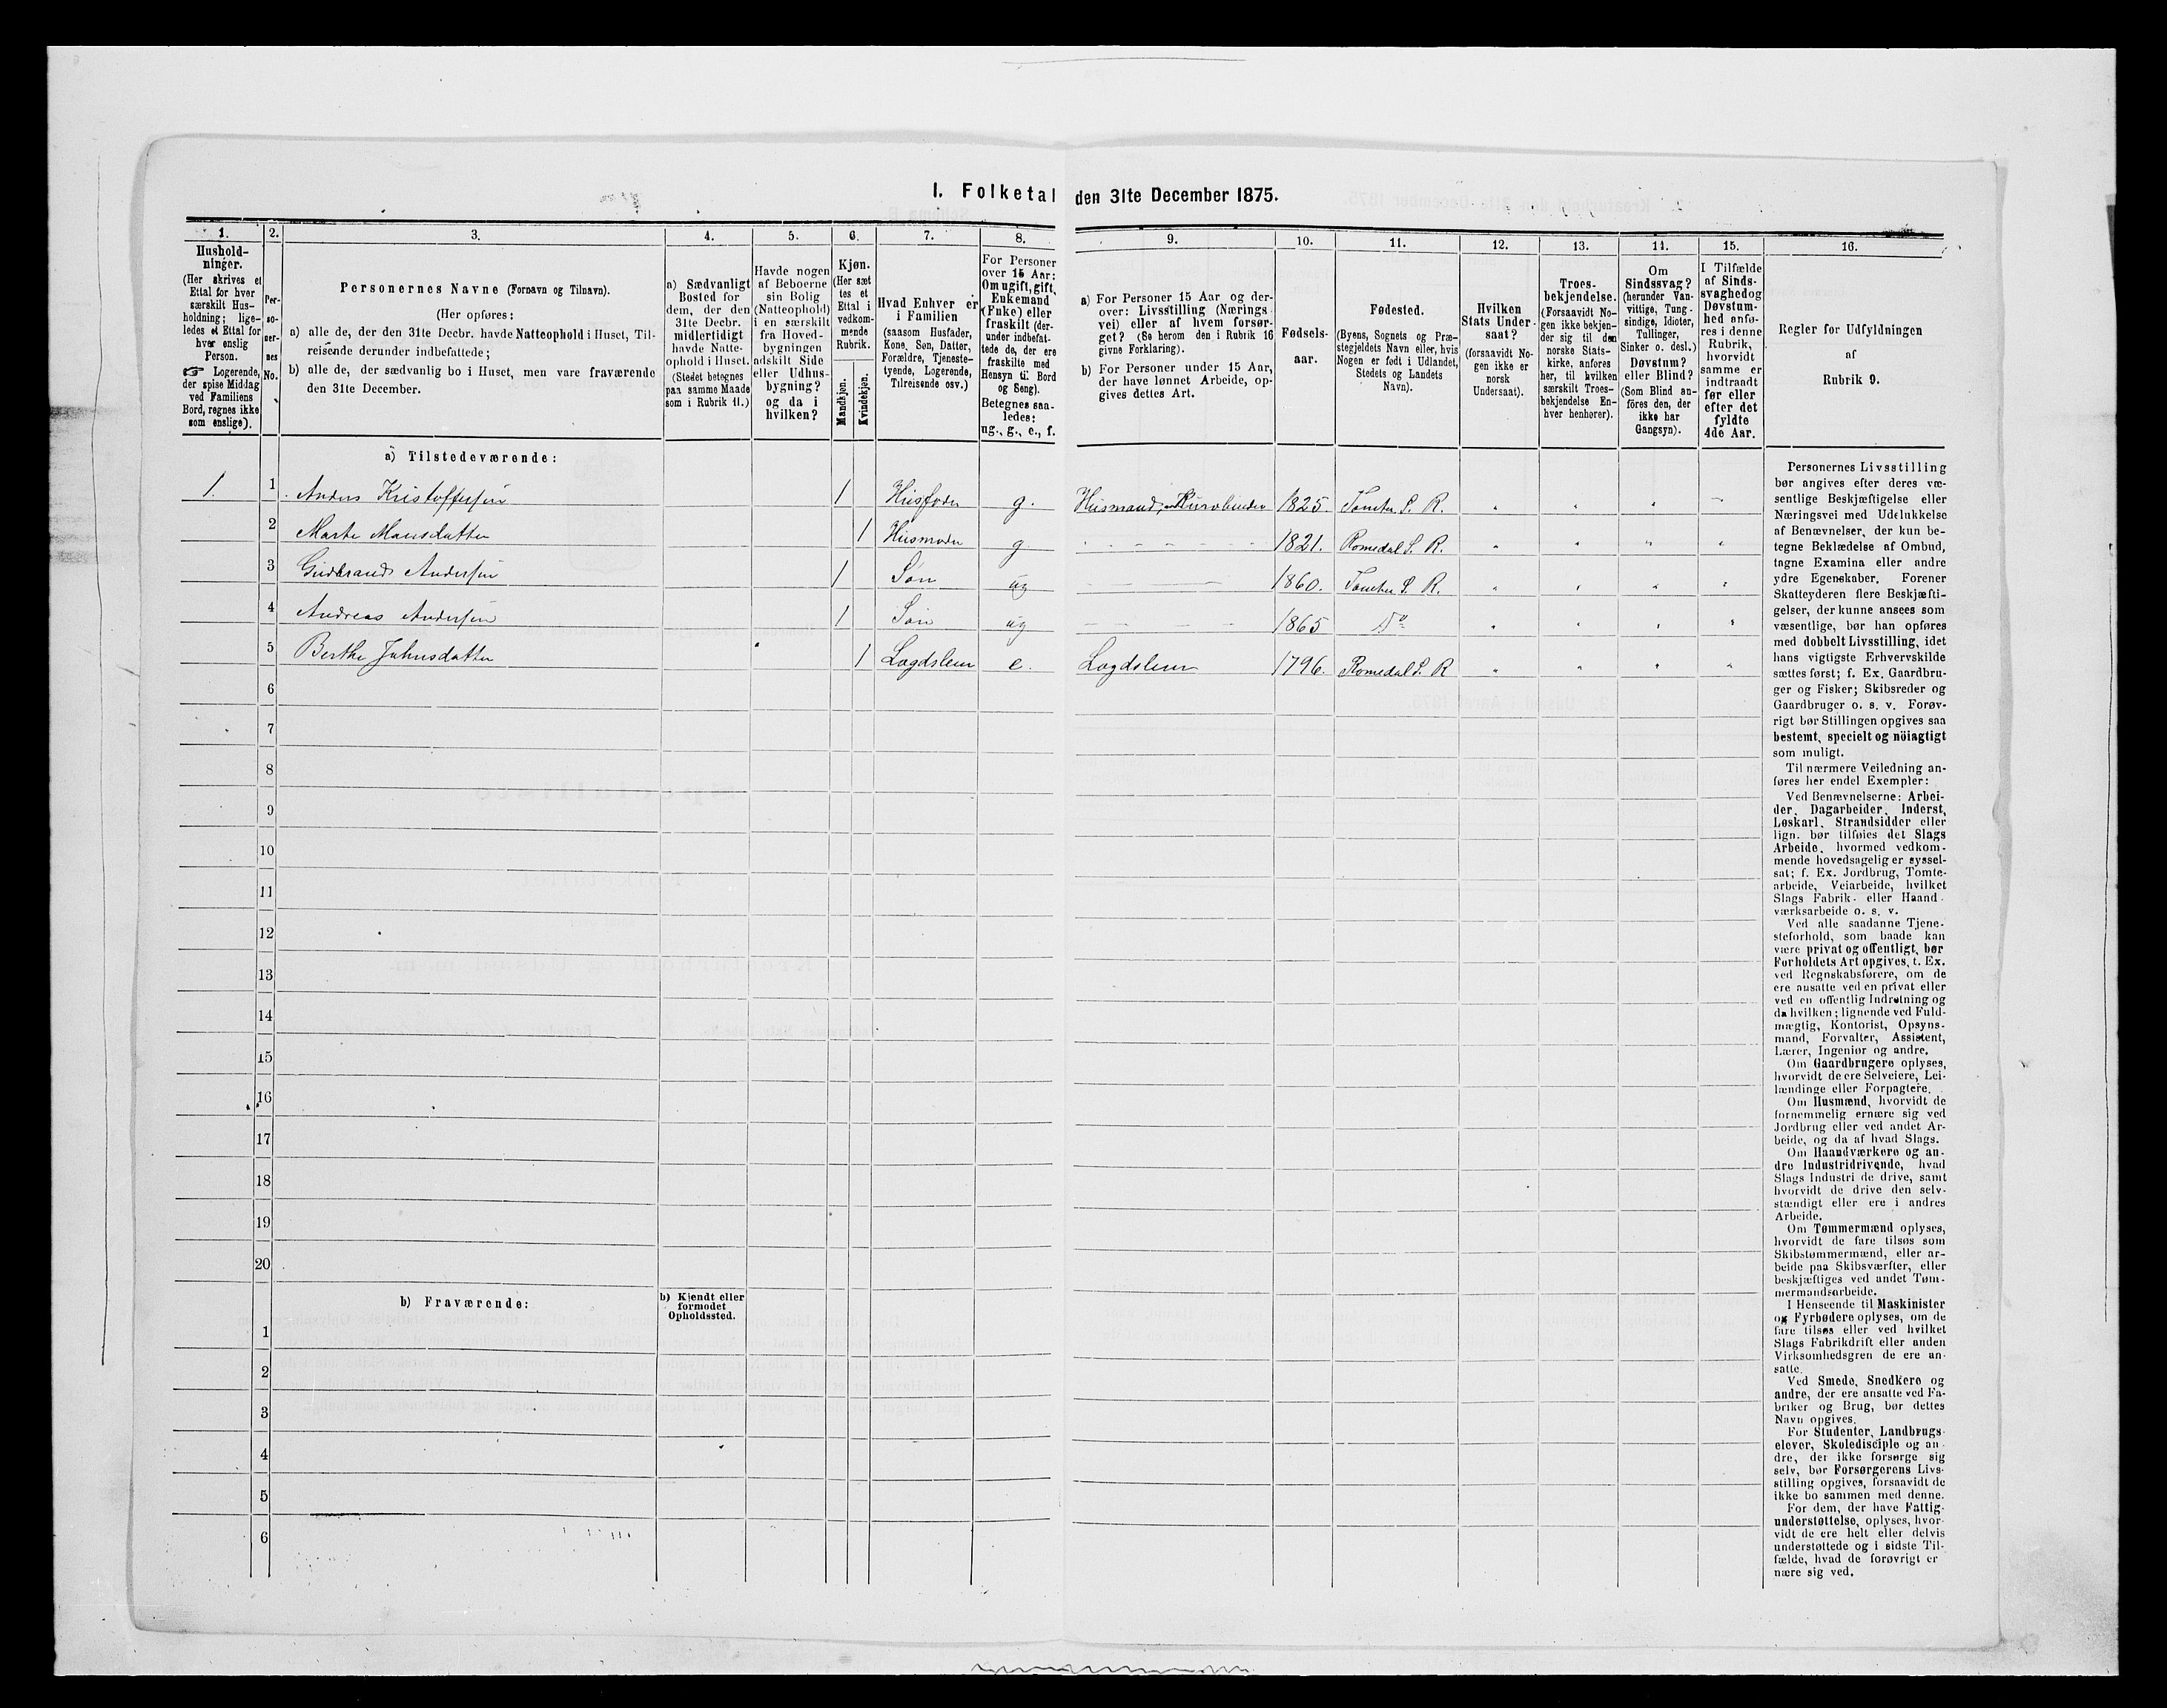 I. Folketal den 31te December 1875.
1. 2. 3. 4. 5. 6. 7. 8. 9. 10. 11. 12. 13. 14. 15. 16.
Hushold-
ninger.
(Her skrives et
Ettal for hver
særskilt Hus-
holdning; lige-
ledes et Ettal for
hver enslig
Person.
☞ Logerende,
der spise Middag
ved Familiens
Bord, regnes ikke
som enslige).
Per-
so-
ner-
nes
No.
Personernes Navne (Fornavn og Tilnavn).
(Her opføres:
a) alle de, der den 31te Decbr. havde Natteophold i Huset, Til-
reisende derunder indbefattede;
b) alle de, der sædvanlig bo i Huset, men vare fraværende
den 31te December.
a) Sædvanligt
Bosted for
dem, der den
31te Decbr.
midlertidigt
havde Natte-
ophold i Huset.
(Stedet betegnes
paa samme Maade
som i Rubrik 11.)
Havde nogen
af Beboerne
sin Bolig
(Natteophold)
i en særskilt
fra Hoved-
bygningen
adskilt Side
eller Udhus-
bygning?
og da i
hvilken?
Kjøn.
(Her sæt
tes et
Ettal i
vedkom-
mende
Rubrik.
Mandkjøn.
Kvindekjøn.
Hvad Enhver er
i Familien
(saasom Husfader,
Kone, Søn, Datter,
Forældre, Tjeneste-
tyende, Logerende,
Tilreisende osv.)
For Personer
over 15 Aar:
Om ugift, gift,
Enkemand
(Enke) eller
fraskilt (der-
under indbefat-
tede de, der ere
fraskilte med
Hensyn til Bord
og Seng).
Betegnes saa-
ledes:
ug., g., e., f.
a) For Personer 15 Aar og der-
over: Livsstilling (Nærings
vei) eller af hvem forsør-
get? (Se herom den i Rubrik 16
givne Forklaring).
b) For Personer under 15 Aar,
der have lønnet Arbeide, op-
gives dettes Art.
Fødsels-
aar.
Fødested.
(Byens, Sognets og Præ-
stegjeldets Navn eller, hvis
Nogen er født i Udlandet,
Stedets og Landets
Navn).
Hvilken
Stats Under-
saat?
(forsaavidt No-
gen ikke er
norsk
Undersaat).
Troes-
bekjendelse.
(Forsaavidt No-
gen ikke bekjen-
der sig til den
norske Stats-
kirke, anføres
her, til hvilken
særskilt Troes-
bekjendelse En-
hver henhører).
Om
Sindssvag?
(herunder Van-
vittige, Tung-
sindige, Idioter,
Tullinger,
Sinker o. desl.)
Døvstum?
eller Blind?
(Som Blind an-
föres den, der
ikke har
Gangsyn).
I Tilfælde
af Sinds-
svaghed og
Døvstum-
hed anfø-
res i denne
Rubrik,
hvorvidt
samme er
indtraadt
før eller
efter det
fyldte
4de Aar.
Regler for Udfyldningen
af
Rubrik 9.
a) Tilstedeværende:
1. 1 Anders Kristoffersen 1 Husfader g. Husmand, 1825. Tomter S. R.
2 Marte Mausdatter 1 Husmoder g 1821. Romedal S. R.
3 Gudbrand Andersen 1 Søn ug 1860. Tomter S. R.
4 Andreas Andersen 1 Søn ug 1865 Do
5 Berthe Johnsdatter 1 Lægdslem e. Lægdslem 1796. Romedal S. R
6
7
8
9
10
11
12
13
14
15
16
17
18
19
20
b) Fraværende:
b) Kjendt eller
formodet
Opholdssted.
1
2
3
4
5
6
Personernes Livsstilling
bør angives efter deres væ-
sentlige Beskjæftigelse eller
Næringsvei med Udelukkelse
af Benævnelser, der kun be-
tegne Beklædelse af Ombud,
tagne Examina eller andre
ydre Egenskaber. Forener
Skatteyderen flere Beskjæfti-
gelser, der kunne ansees som
væsentlige, bør han opføres
med dobbelt Livsstilling, idet
hans vigtigste Erhvervskilde
sættes først; f. Ex. Gaardbru-
ger og Fisker; Skibsreder og
Gaardbruger o. s. v. Forøv-
rigt bør Stillingen opgives saa
bestemt, specielt og nöiagtigt
som muligt.
Til nærmere Veiledning an-
føres her endel Exempler:
Ved Benævnelserne: Arbei-
der, Dagarbeider, Inderst,
Løskarl, Strandsidder eller
lign. bør tilføies det Slags
Arbeide, hvormed vedkom-
mende hovedsagelig er syssel-
sat; f. Ex. Jordbrug, Tomte-
arbeide, Veiarbeide, hvilket
Slags Fabrik- eller Haand-
værksarbeide o. s. v.
Ved alle saadanne Tjene-
steforhold, som baade kan
være privat og offentligt, bør
Forholdets Art opgives, f. Ex.
ved Regnskabsførere, om de
ere ansatte ved en privat eller
ved en offentlig Indretning og
da hvilken; lignende ved Fuld-
mægtig, Kontorist, Opsyns-
mand, Forvalter, Assistent,
Lærer, Ingeniør og andre.
Om Gaardbrugere oplyses,
hvorvidt de ere Selveiere, Lei-
lændinge eller Forpagtere.
Om Husmænd, hvorvidt de
fornemmelig ernære sig ved
Jordbrug eller ved andet Ar-
beide, og da af hvad Slags.
Om Haandværkere og an-
dre Industridrivende, hvad
Slags Industri de drive, samt
hvorvidt de drive den selv-
stændigt eller ere i andres
Arbeide.
Om Tømmermænd oplyses,
hvorvidt de fare tilsøs som
Skibstømmermænd, eller ar-
beide paa Skibsværfter, eller
beskjæftiges ved andet Tøm-
mermandsarbeide.
I Henseende til Maskinister
og Fyrbødere oplyses, om de
fare tilsøs eller ved hvilket
Slags Fabrikdrift eller anden
Virksomhedsgren de ere an-
satte.
Ved Smede, Snedkere og
andre, der ere ansatte ved Fa-
briker og Brug, bør dettes
Navn opgives.
For Studenter, Landbrugs-
elever, Skoledisciple og an-
dre, der ikke forsørge sig
selv, bør Forsørgerens Livs-
stilling opgives, forsaavidt de
ikke bo sammen med denne.
For dem, der have Fattig-
understøttelse, oplyses, hvor-
vidt de ere helt eller delvis
understøttede og i sidste Til-
fælde, hvad de forøvrigt er
nære sig ved.